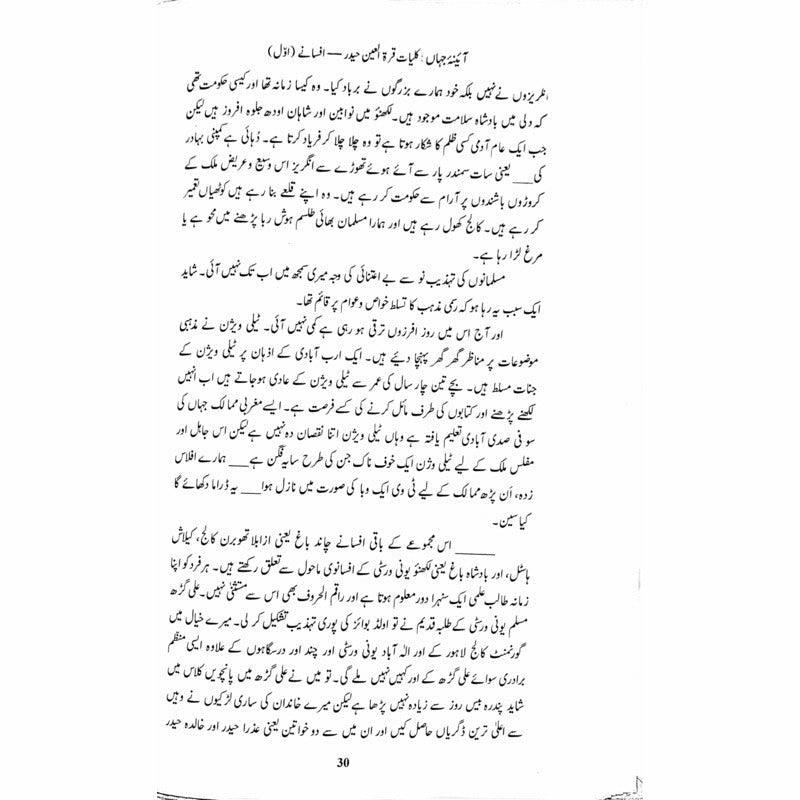 آئینۂ جہاں: کلیات قرۃ العین حیدر — افسانے (اوّل)
انگریزوں نے نہیں بلکہ خود ہمارے بزرگوں نے برباد کیا۔ وہ کیسا زمانہ تھا اور کیسی حکومت تھی
کہ دلی میں بادشاہ سلامت موجود ہیں۔ لکھنؤ میں نوابین اور شاہان اودھ جلوہ افروز ہیں لیکن
جب ایک عام آدمی کسی ظلم کا شکار ہوتا ہے تو وہ چلا چلا کر فریاد کرتا ہے۔ دُہائی ہے کمپنی بہادر
کی ___ یعنی سات سمندر پار سے آئے ہوئے تھوڑے سے انگریز اس وسیع و عریض ملک کے
کروڑوں باشندوں پر آرام سے حکومت کر رہے ہیں۔ وہ اپنے قلعے بنا رہے ہیں کوٹھیاں تعمیر
کر رہے ہیں۔ کالج کھول رہے ہیں اور ہمارا مسلمان بھائی طلسم ہوش ربا پڑھنے میں محو ہے یا
مرغ لڑا رہا ہے۔
مسلمانوں کی تہذیب نو سے بے اعتنائی کی وجہ میری سمجھ میں اب تک نہیں آئی۔ شاید
ایک سبب یہ رہا ہو کہ رسمی مذہب کا تسلط خواص و عوام پر قائم تھا۔
اور آج اس میں روز افزوں ترقی ہو رہی ہے کمی نہیں آئی۔ ٹیلی ویژن نے مذہبی
موضوعات پر مناظر گھر گھر پہنچا دیئے ہیں۔ ایک ارب آبادی کے اذہان پر ٹیلی ویژن کے
جنات مسلط ہیں۔ بچے تین چار سال کی عمر سے ٹیلی ویژن کے عادی ہو جاتے ہیں اب انہیں
لکھنے پڑھنے اور کتابوں کی طرف مائل کرنے کی کسے فرصت ہے۔ ایسے مغربی ممالک جہاں کی
سو فی صدی آبادی تعلیم یافتہ ہے وہاں ٹیلی ویژن اتنا نقصان دہ نہیں ہے لیکن اس جاہل اور
مفلس ملک کے لیے ٹیلی وژن ایک خوف ناک جن کی طرح سایہ فگن ہے ___ ہمارے افلاس
زدہ، اَن پڑھ ممالک کے لیے ٹی وی ایک وبا کی صورت میں نازل ہوا ___ یہ ڈراما دکھائے گا
کیا سین۔
___ اس مجموعے کے باقی افسانے چاند باغ یعنی ازابلا تھوبرن کالج، کیلاش
ہاسٹل، اور بادشاہ باغ یعنی لکھنؤ یونی ورسٹی کے افسانوی ماحول سے تعلق رکھتے ہیں۔ ہر فرد کو اپنا
زمانہ طالب علمی ایک سنہرا دور معلوم ہوتا ہے اور راقم الحروف بھی اس سے مستثنیٰ نہیں۔ علی گڑھ
مسلم یونی ورسٹی کے طلبہ قدیم نے تو اولڈ بوائز کی پوری تہذیب تشکیل کر لی۔ میرے خیال میں
گورنمنٹ کالج لاہور کے اور الٰہ آباد یونی ورسٹی اور چند اور درسگاہوں کے علاوہ ایسی منظم
برادری سوائے علی گڑھ کے اور کہیں نہیں ملے گی۔ تو میں نے علی گڑھ میں پانچویں کلاس میں
شاید پندرہ بیس روز سے زیادہ نہیں پڑھا ہے لیکن میرے خاندان کی ساری لڑکیوں نے وہیں
سے اعلیٰ ترین ڈگریاں حاصل کیں اور ان میں سے دو خواتین یعنی عذرا حیدر اور خالدہ حیدر
30